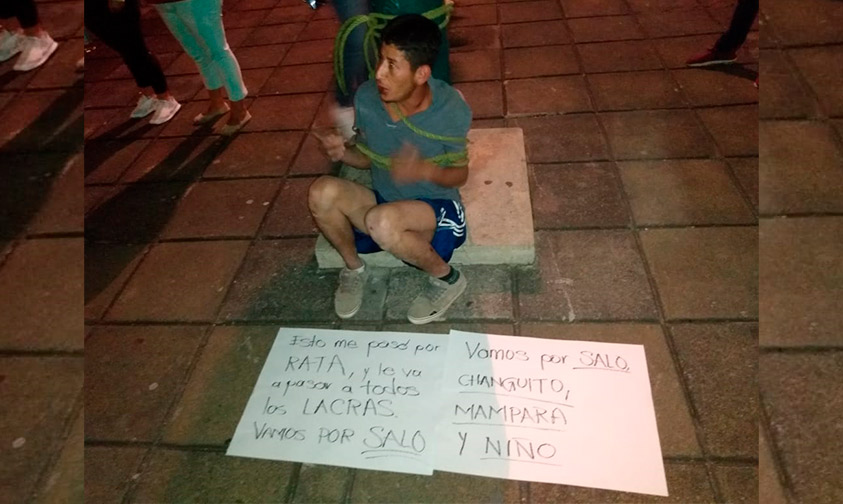 Esto me pasó por
RATA, y le va
a pasar a todos
los LACRAS.
VAMOS POR SALO
Vamos por SALO,
CHANGUITO,
MAMPARA
Y NIÑO